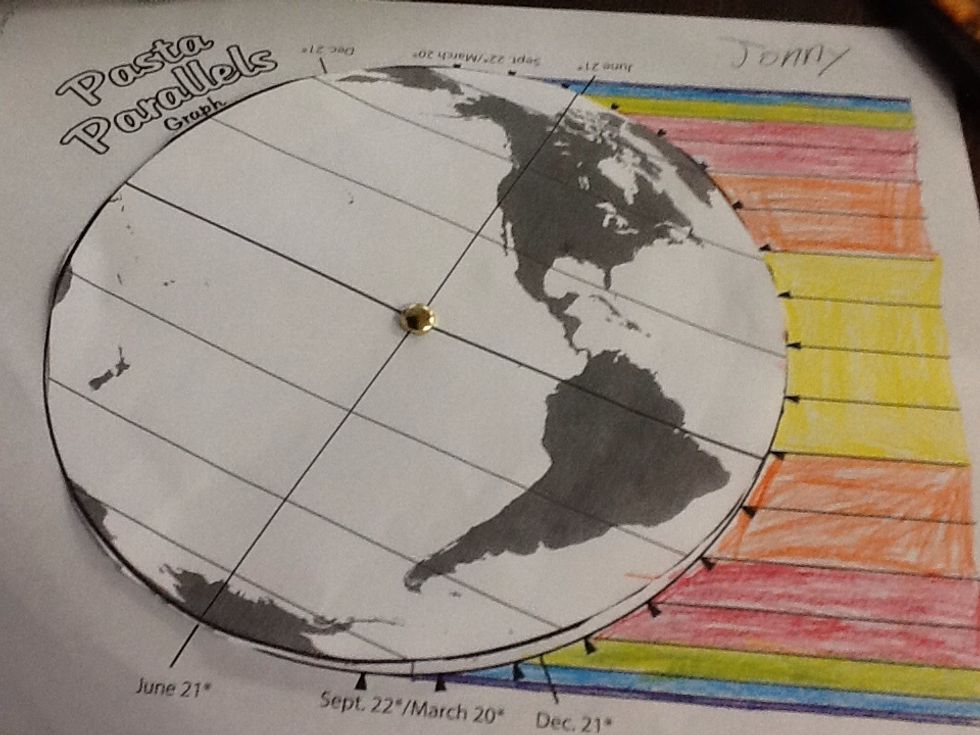 Pasta
Parallels
Graph
Dec. 21*
Sept. 22*/March 20*
June 21*
Jonny
June 21*
Sept. 22*/March 20*
Dec. 21*